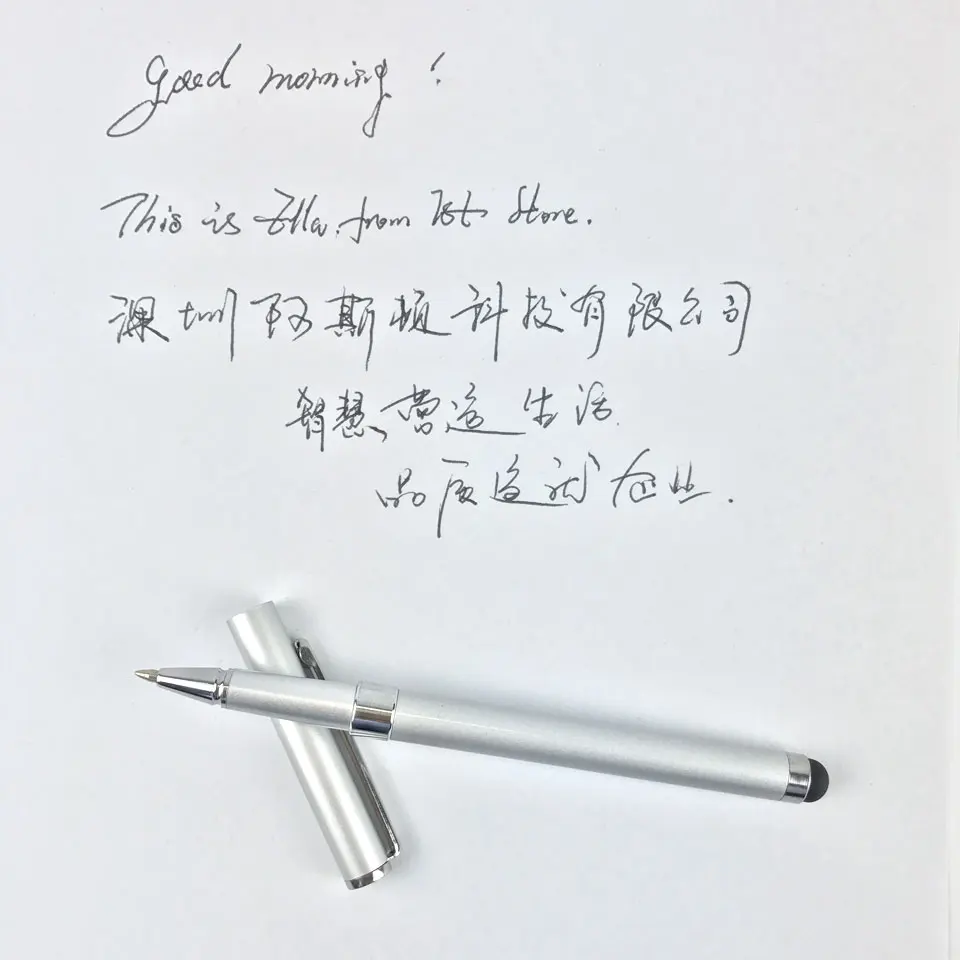 Good morning !
This is Ella. from Store.
深圳阿斯顿科技有限公司
智慧营造生活
品质造就企业.